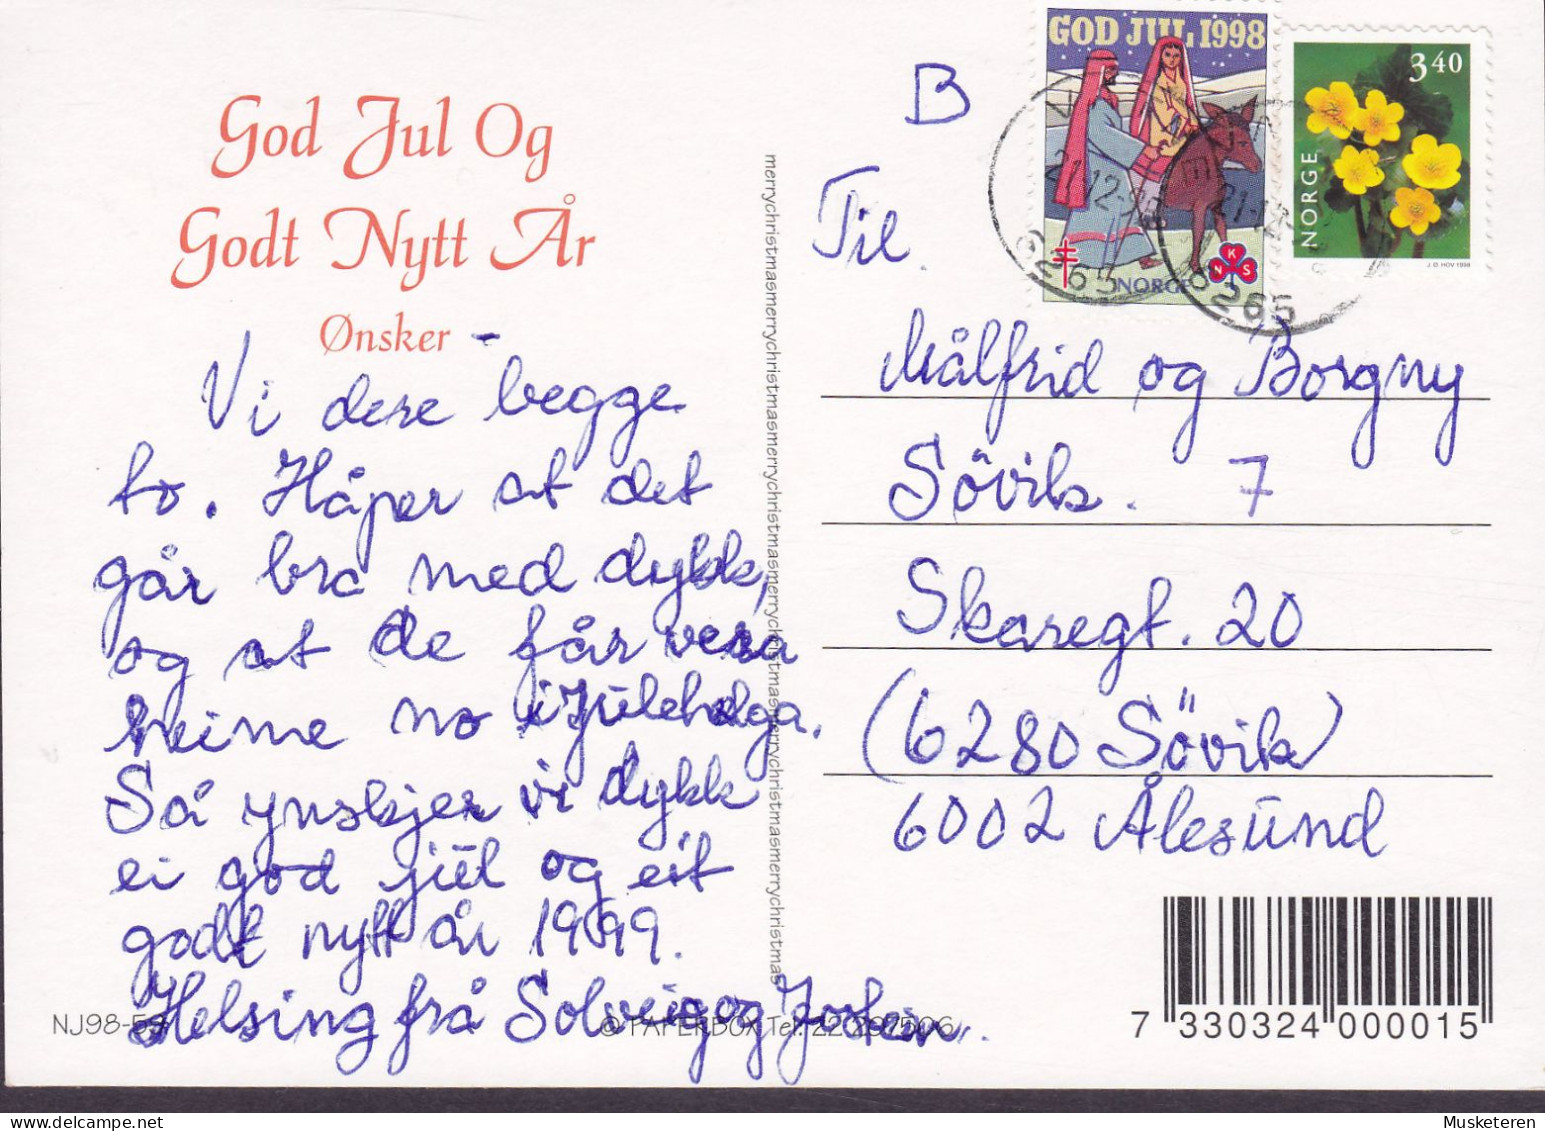 God Jul Og
Godt Nytt År
Ønsker -
Vi dere begge
to. Håper at det
går bra med dykk,
og at de får vera
heime no i Julehelga.
Så ynskjer vi dykk
ei god jul og eit
godt nytt år 1999.
Helsing frå Solveig og Jostein.
NJ98-59
© PAPERBOX Tel.
merrychristmasmerrychristmasmerrychristmasmerrychristmasmerrychristmasmerrychristmasmerrychristmas
B
GOD JUL 1998
NORGE
N K S
3 40
NORGE
J. Ø. HOV 1998
21-12-98
6265
6265
Til
Målfrid og Borgny
Sövik. 7
Skaregt. 20
(6280 Sövik)
6002 Ålesund
7 330324 000015
Musketeren